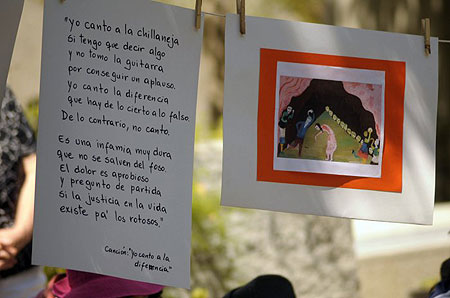 "Yo canto a la chillaneja
Si tengo que decir algo
y no tomo la guitarra
por conseguir un aplauso.
Yo canto la diferencia
que hay de lo cierto a lo falso.
De lo contrario, no canto.
Es una infamia muy dura
que no se salven del foso
El dolor es aprobioso
y pregunto de partida
si la justicia en la vida
existe pa' los rotosos."
Canción: "yo canto a la
diferencia"